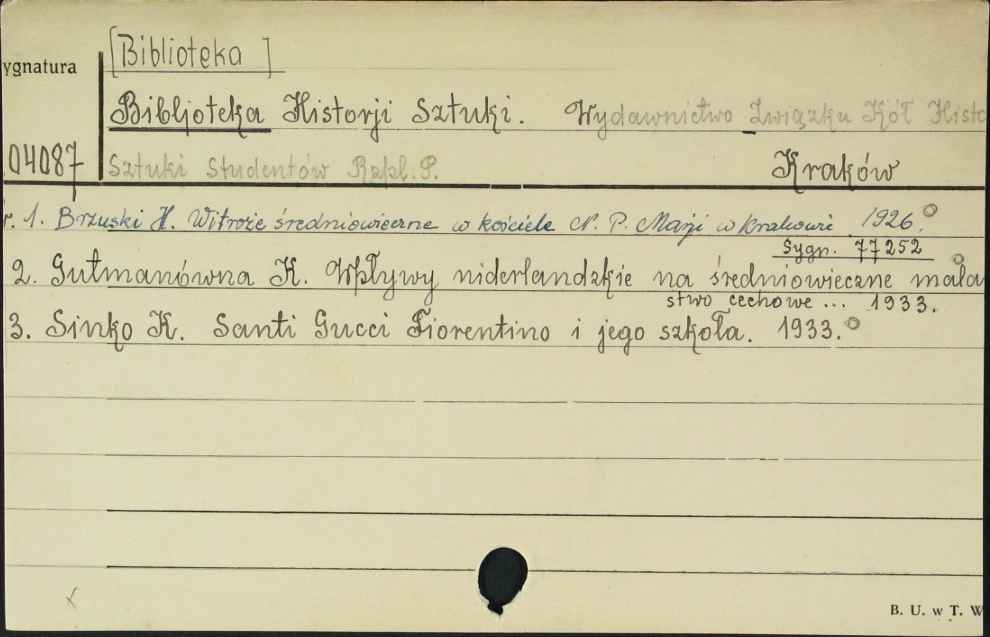 [Biblioteka]
ygnatura
Biblioteka Historji Sztuki. Wydawnictwo Związku Kół Histo
04087 Sztuki Studentów Rzpl. P. Kraków
r. 1. Brzuski H. Witraże średniowieczne w kościele N. P. Marji w Krakowie 1926.
Sygn. 77252
2. Gutmanówna K. Wpływy niderlandzkie na średniowieczne mala
stwo cechowe ... 1933.
3. Sinko K. Santi Gucci Fiorentino i jego szkoła. 1933.
B. U. w T. W